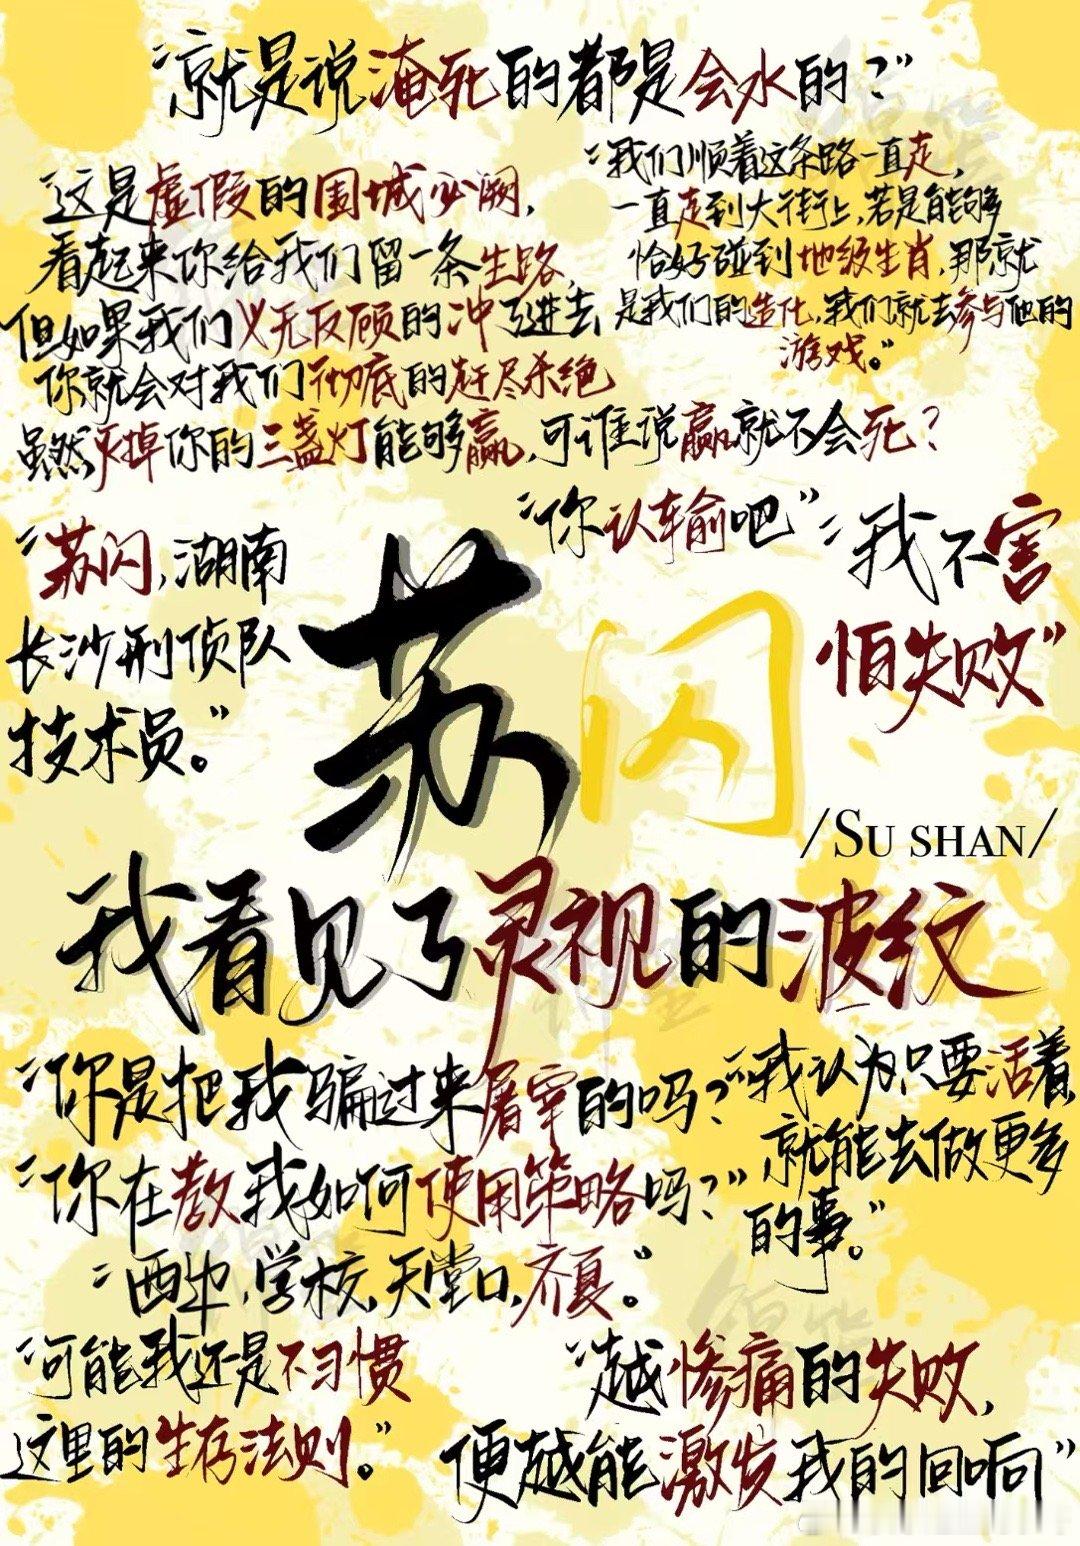 “就是说淹死的都是会水的？”
“我们顺着这条路一直走，
一直走到大街上，若是能够
恰好碰到地级生肖，那就
是我们的造化，我们就去参与他的
游戏。”
这是虚假的围城必阙，
看起来你给我们留一条生路，
但如果我们义无反顾的冲了进去
你就会对我们彻底的赶尽杀绝
虽然灭掉你的三盏灯能够赢，可谁说赢就不会死？
“你认输吧”
“我不害
怕失败”
“苏闪，湖南
长沙刑侦队
技术员。”
苏闪
/SU SHAN/
我看见了灵视的波纹
“你是把我骗过来屠宰的吗？”
“我认为只要活着，
就能去做更多
的事。”
“你在教我如何使用策略吗？”
“西边，学校，天堂口，齐夏。”
“可能我还是不习惯
这里的生存法则。”
“越惨痛的失败，
便越能激发我的回响”